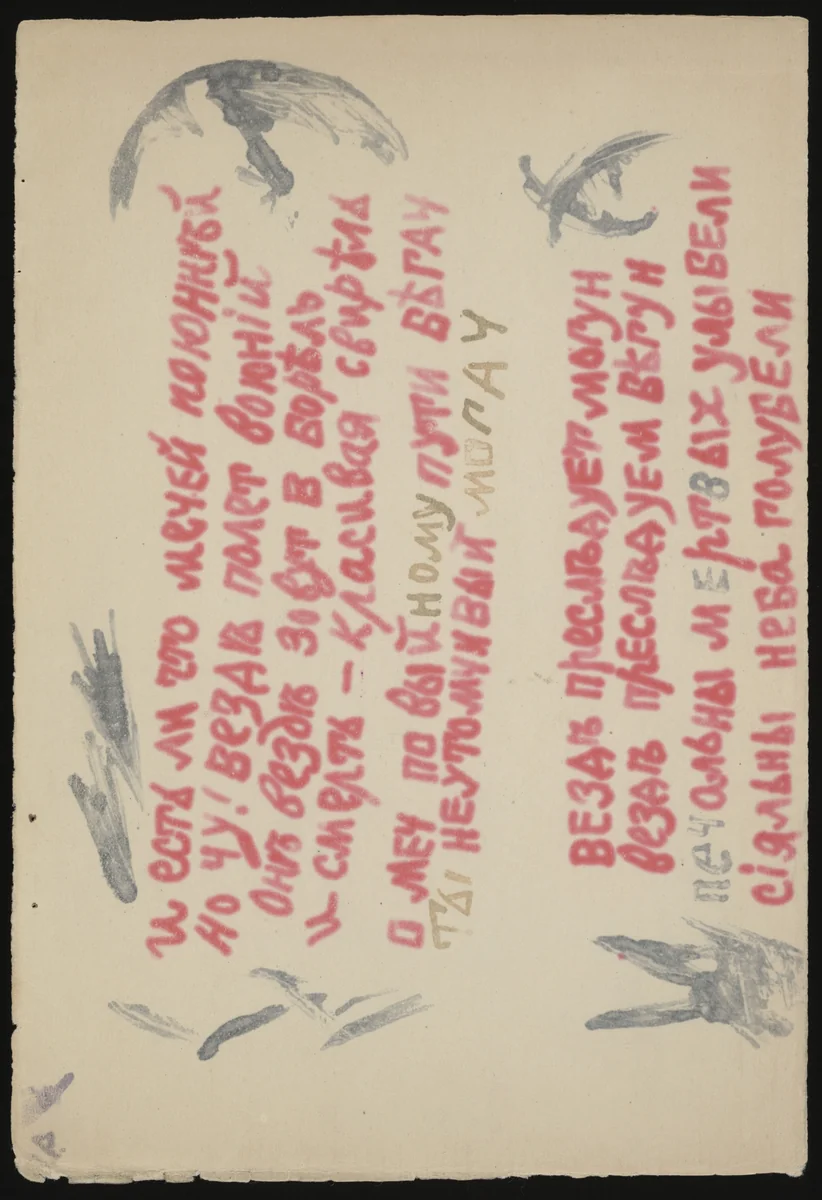 и есть ли что мечей поюнный
но чу! вездѣ полет воюній
онѣ вездѣ зовут в борѣль
и смерть – красивая свирѣль
о меч по выйному пути бѣгач
ты неутомчивый могач
вездѣ преслѣдует могун
вездѣ преслѣдуем бѣгун
печальны мертвых улыбели
сіяльны неба голубели